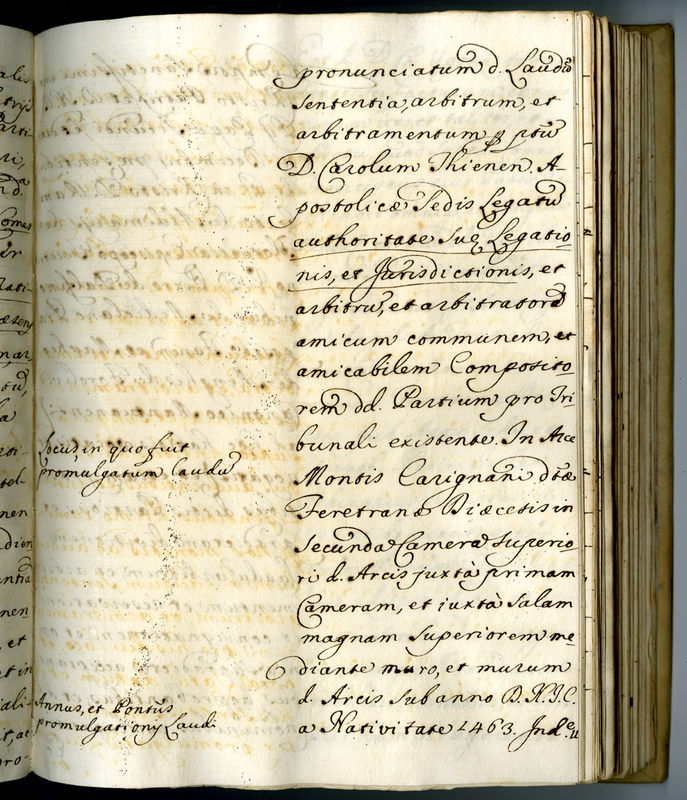 pronunciatum d. Laudũ
sententia, arbitrum, et
arbitramentum p ptũ
D. Carolum Thienen. A-
postolicæ Sedis Legatũ
authoritate suę Legatio
nis, et Jurisdictionis, et
arbitrũ, et arbitratorẽ
amicum communem, et
amicabilem Composito
rem dd. Partium pro Tri-
bunali existente. In Arce
Montis Carignani dtæ
Feretranæ Diæcesis in
secunda Camera superio
ri d. Arcis juxtà primam
Cameram, et iuxtà salam
magnam superiorem me
diante muro, et murum
d. Arcis sub anno D.N.J.C.
a Nativitate 1463. Inde. 11
Locus, in quo fuit
promulgatum Laudũ
Annus, et Pontũs
promulgationis Laudi